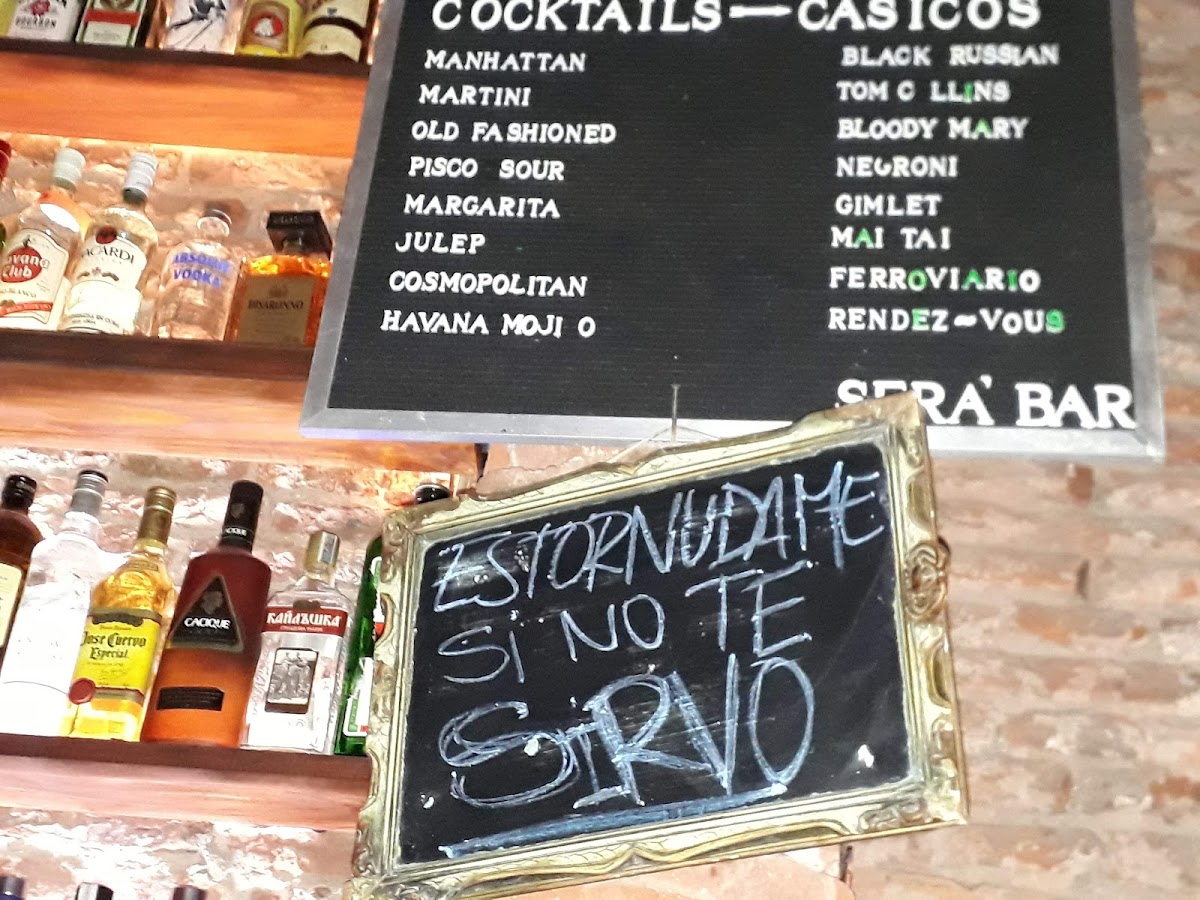 COCKTAILS — CASICOS
MANHATTAN
MARTINI
OLD FASHIONED
PISCO SOUR
MARGARITA
JULEP
COSMOPOLITAN
HAVANA MOJI O
BLACK RUSSIAN
TOM C LLINS
BLOODY MARY
NEGRONI
GIMLET
MAI TAI
FERROVIARIO
RENDEZ~VOUS
SERA' BAR
ESTORNUDAME
SI NO TE
SIRVO
BOURBON
Havana
Club
BACARDI
ABSOLUT
VODKA
DISARONNO
Jose Cuervo
Especial
CACIQUE
CACIQUE